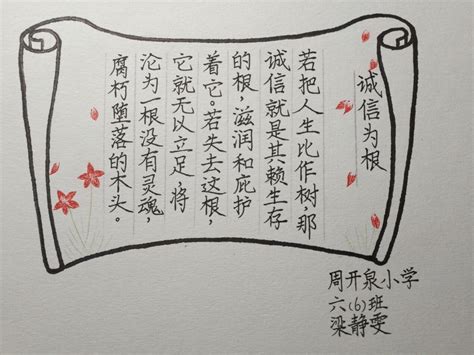 诚信为根
若把人生比作树，那
诚信就是其赖生存
的根，滋润和庇护
着它。若失去这根，
它就无以立足，将
沦为一根没有灵魂，
腐朽堕落的木头。
周开泉小学
六（6）班
梁静雯